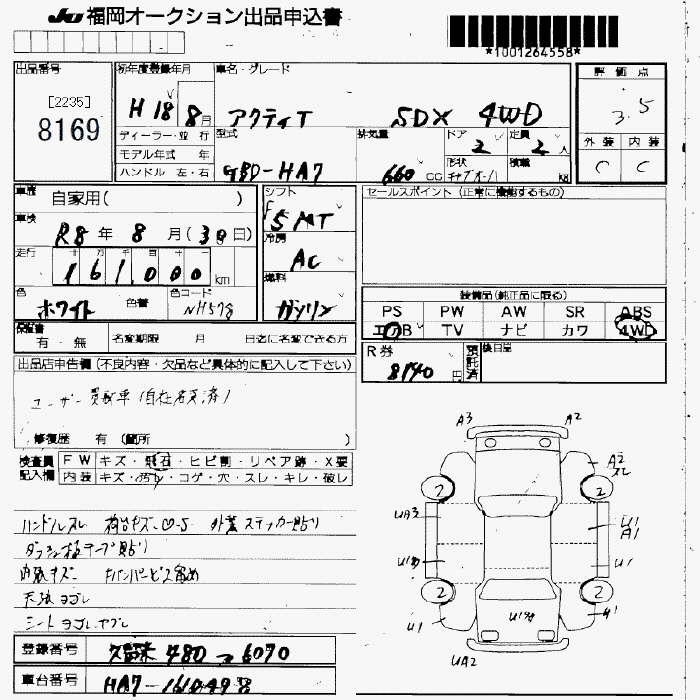 JU 福岡オークション出品申込書
*1001264558*
出品番号
[2235]
8169
初年度登録年月
H 18 8月
車名・グレード
アクティT SDX 4WD
評価点
3.5
ディーラー・並行
モデル年式 年
ハンドル 左・右
型式
GBD-HA7
排気量
660 CC
ドア
2
定員
2 人
形状
積載
kg
外装 内装
C C
車歴
自家用( )
車検
R8年 8月(30日)
走行
十 万 千 百 十 一
161,000 km
色
ホワイト
色替
色コード
NH578
シフト
F5 MT
冷房
AC
燃料
ガソリン
セールスポイント (正常に機能するもの)
装備品(純正品に限る)
PS PW AW SR ABS
エアB TV ナビ カワ 4WD
保証書
有・無
名変期限 月 日迄に名変できる方
R券
8140 円
預託済
検日
出品店申告欄 (不良内容・欠品など具体的に記入して下さい)
ユーザー買取車
修復歴 有 (箇所 )
検査員記入欄
FW キズ・飛石・ヒビ割・リペア跡・X要
内装 キズ・汚れ・コゲ・穴・スレ・キレ・破レ
ハンドルスレ 荷台キズ・ 外装ステッカー貼り
ダッシュ板テープ貼り
内張キズ Fバンパービス留め
天張ヨゴレ
シートヨゴレヤブレ
A3 A2
A2 スレ
2 2
UA3 U1 A1
U1
2 2
U1 U1
UA2
登録番号
久留米 480 つ 6070
車台番号
HA7-1610498